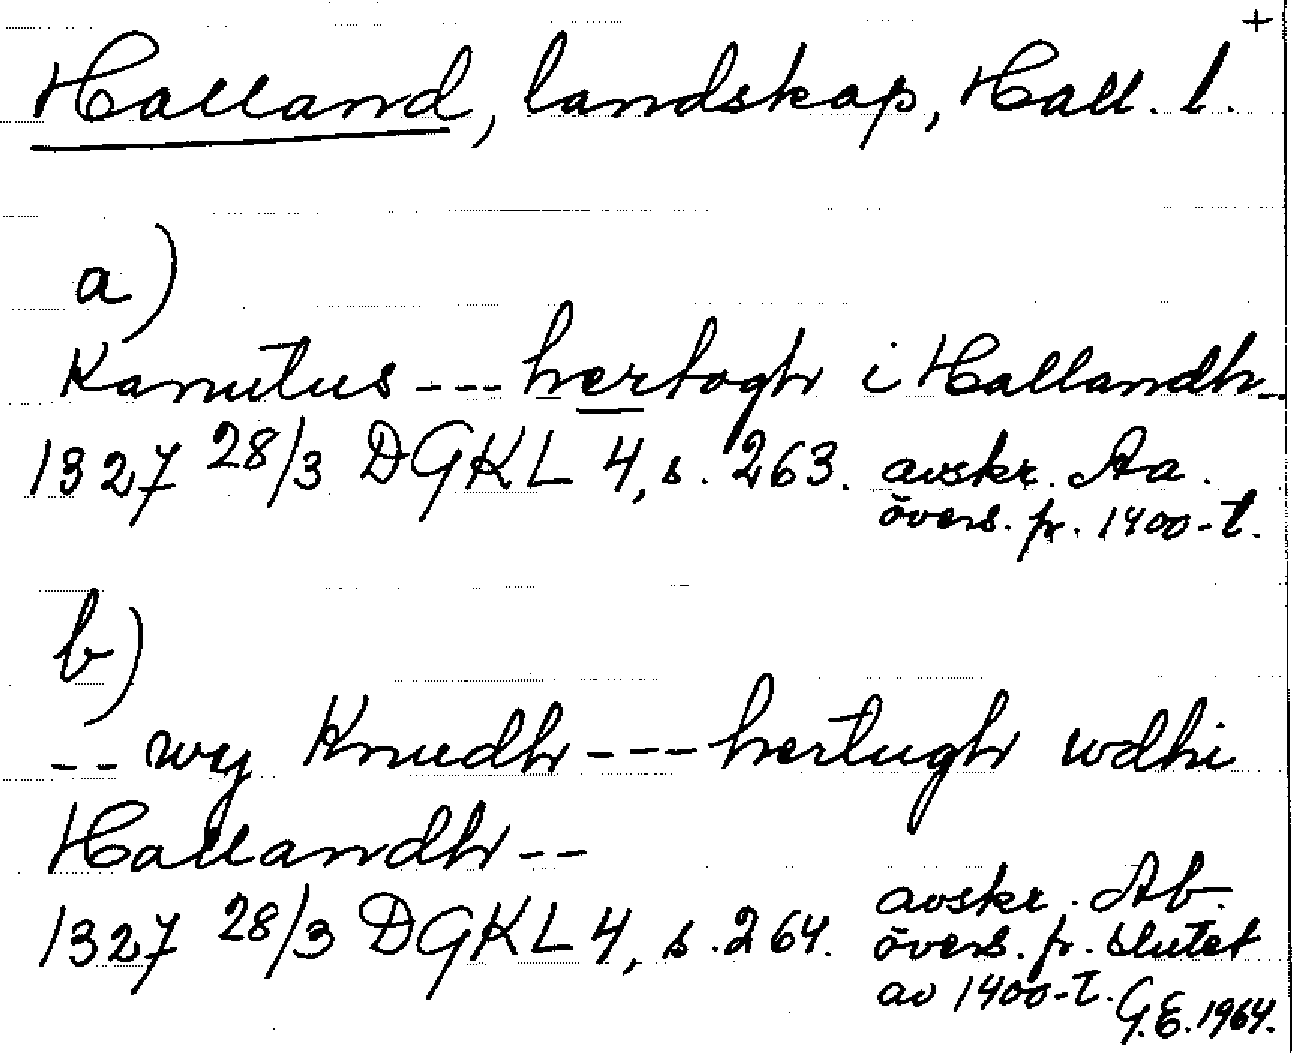 +
Halland, landskap, Hall. l.
a)
Kanutus --- hertogh i Hallandh--
1327 28/3 DGKL 4, s. 263. avskr. Aa.
övers. fr. 1400-t.
b)
-- wy Knudh --- hertugh udhi
Hallandh --
1327 28/3 DGKL 4, s. 264. avskr. Ab.
övers. fr. slutet
av 1400-t. G.E. 1964.